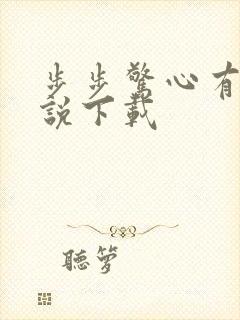 步步驚心有
說下載
聽夢